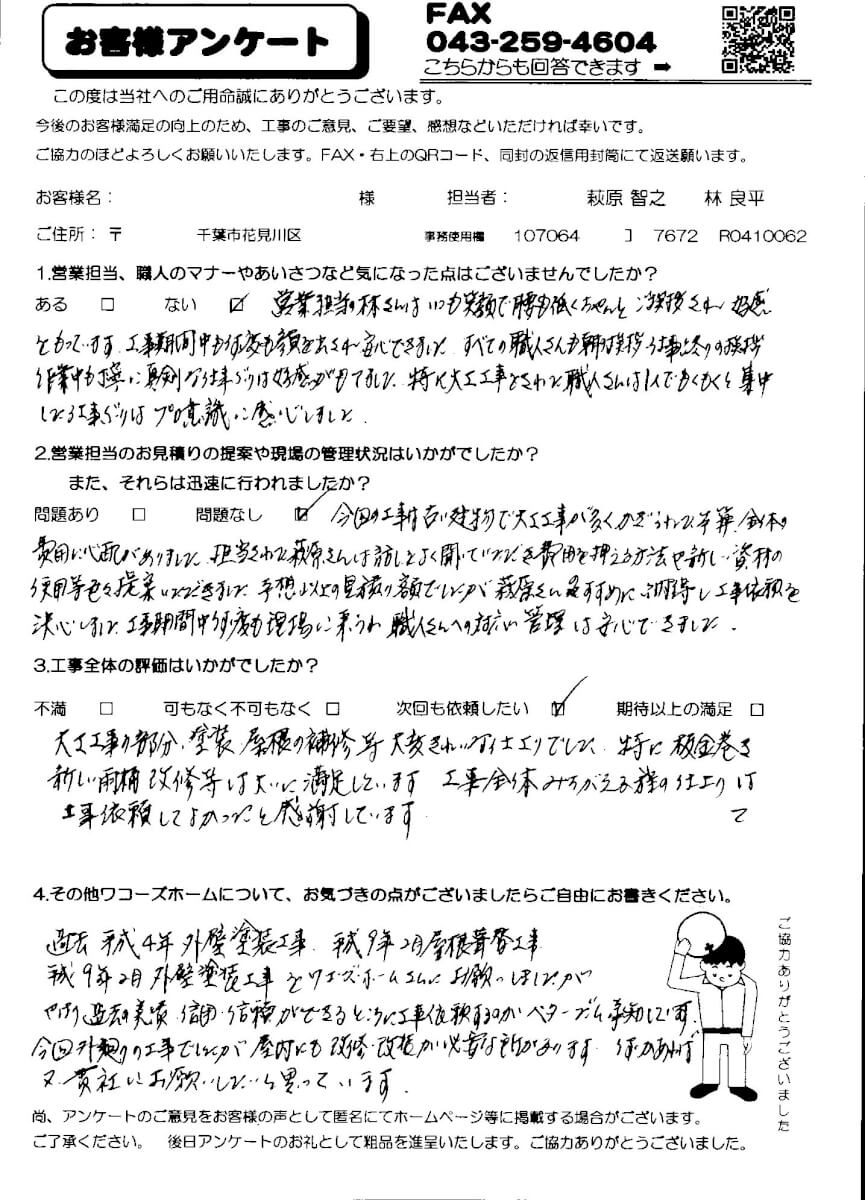 お客様アンケート
FAX
043-259-4604
こちらからも回答できます ➡
この度は当社へのご用命誠にありがとうございます。
今後のお客様満足の向上のため、工事のご意見、ご要望、感想などいただければ幸いです。
ご協力のほどよろしくお願いいたします。FAX・右上のQRコード、同封の返信用封筒にて返送願います。
お客様名： 様 担当者： 萩原 智之 林 良平
ご住所： 〒 千葉市花見川区 事務使用欄 107064 7672 R0410062
1.営業担当、職人のマナーやあいさつなど気になった点はございませんでしたか？
ある □ ない ☑ 営業担当の林さんはいつも笑顔で腰も低くちゃんとご挨拶され 好感
をもっています。工事期間中も何度も顔を出され安心できました。すべての職人さんも朝の挨拶 仕事終りの挨拶
作業中も丁寧に真剣な仕事ぶりは好感がもてました。特に大工工事をされた職人さんは1人でもくもくと集中
した仕事ぶりはプロ意識に感心しました。
2.営業担当のお見積りの提案や現場の管理状況はいかがでしたか？
また、それらは迅速に行われましたか？
問題あり □ 問題なし ☑ 今回の工事は古い建物で大工工事が多くかぎられた予算、全体の
費用に心配がありました。担当された萩原さんは話しをよく聞いていただき費用を押える方法や新しい資材の
使用等色々提案いただきました。予想以上の見積り額でしたが 萩原さんのおすすめに納得し工事依頼を
決心しました。工事期間中何度も現場に来られ 職人さんへの対応 管理は安心できました。
3.工事全体の評価はいかがでしたか？
不満 □ 可もなく不可もなく □ 次回も依頼したい ☑ 期待以上の満足 □
大工工事の部分、塗装 屋根の補修等 大変きれいな仕上りでした。特に板金巻き
新しい雨樋 改修等は大いに満足しています 工事全体みちがえる様な仕上りは
工事依頼してよかったと感謝しています。
4.その他ワコーズホームについて、お気づきの点がございましたらご自由にお書きください。
過去 平成4年 外壁塗装工事、平成9年2月屋根葺替工事
平成9年2月 外壁塗装工事をワコーズ・ホームさんにお願いしましたが
やはり過去の実績 信用・信頼ができるところに工事依頼するのがベターだと承知しています。
今回外廻りの工事でしたが 屋内にも改修・改造が必要な所があります。何かあれば
又 貴社にお願いしたいと思っています。
ご協力ありがとうございました
尚、アンケートのご意見をお客様の声として匿名にてホームページ等に掲載する場合がございます。
ご了承ください。 後日アンケートのお礼として粗品を進呈いたします。ご協力ありがとうございました。